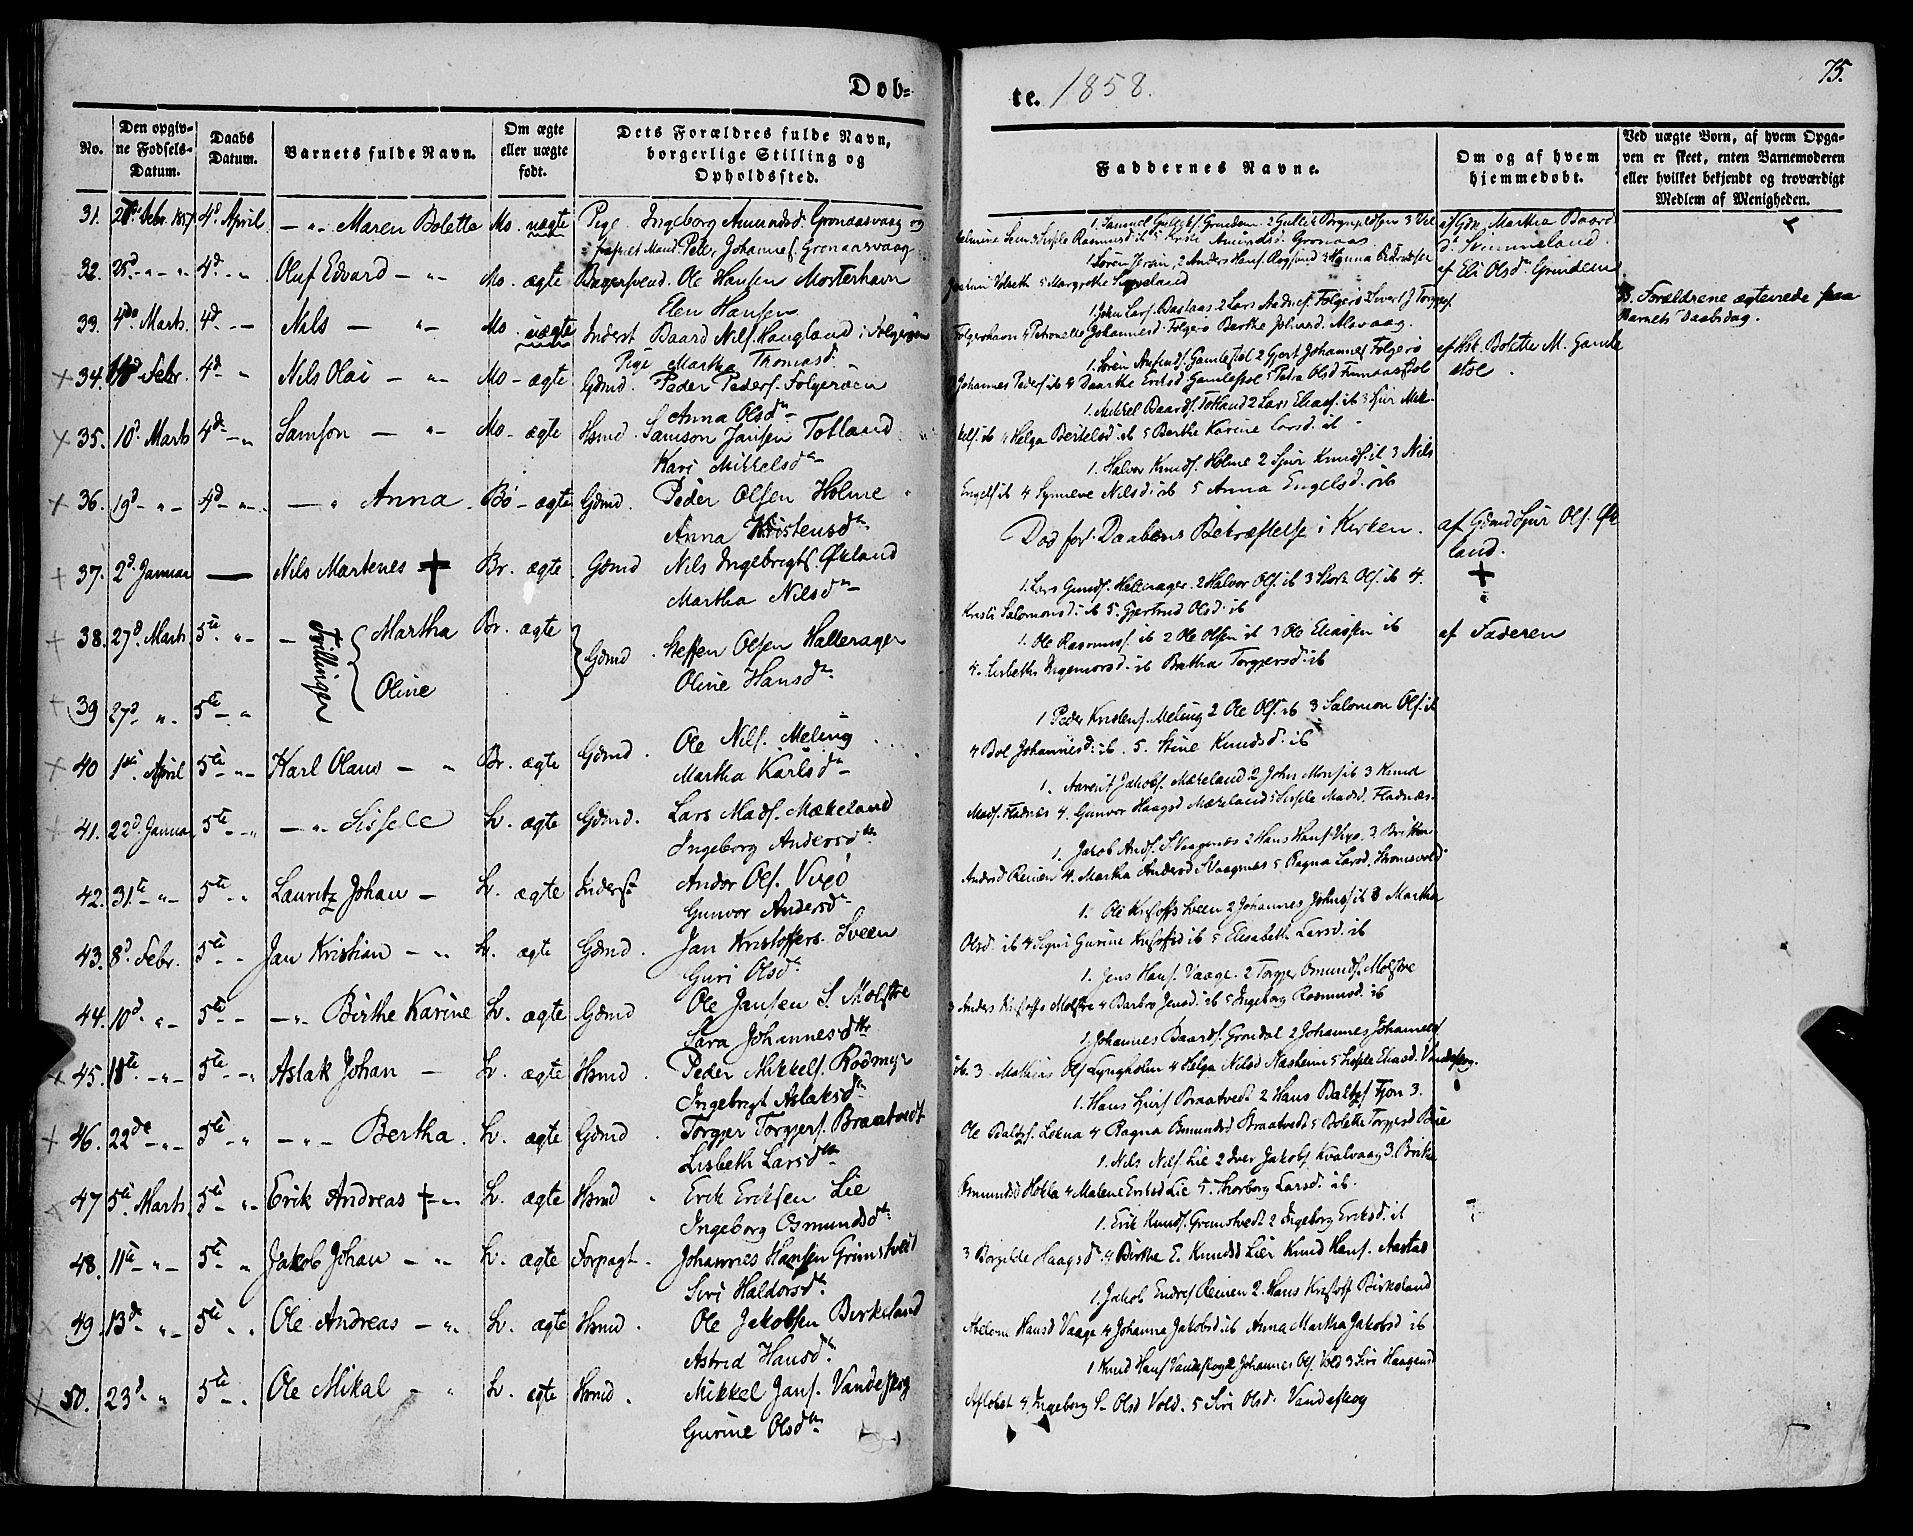 Døb=
te. 1858.
75.
No.
Den opgiv-
ne Fødsels-
Datum.
Daabs
Datum.
Barnets fulde Navn.
Om ægte
eller uægte
født.
Dets Forældres fulde Navn,
borgerlige Stilling og
Opholdssted.
Faddernes Navne.
Om og af hvem
hjemmedøbt.
Ved uægte Børn, af hvem Opga-
ven er skeet, enten Barnemoderen
eller hvilket bekjendt og troværdigt
Medlem af Menigheden.
31. Febr. 1857 4d April — „ Maren Bolette Mo. uægte Pige Ingeborg Amundsd. Gronaasvaag og
Mand Peder Johannes. Gronaasvaag
1. Samuel Grindem 2 Gullik 3
Rasmusd ib 5 Amundsd. Gronaas
af Gdm. Martha Baard
sd. Svinneland.
32. 25d „ „ 4d „ Oluf Edvard — „ Mo. ægte Ole Hansen Mosterhavn
Elen Hansen
1. Søren Jersin, 2 Anders Hans. Røgsund 3 Hanna
5 Margrethe
af Eli Olsdr Grindem
33. 4de Marts 4d „ Nils — „ Mo. uægte Inderst Baard Nils. Haugland i Folgerøen
Pige Martha Thomasd.
1. John Lars. 2 Lars Folgerø
Folgerøhavn 4 Petronelle Johannesd. Folgerø Berthe Alsvaag.
B. Forældrene ægteviede paa
Barnets Daabsdag.
34. Febr. 4d „ Nils Olai — „ Mo - ægte Gdmd. Peder Peders. Folgerøen
Anna Olsdr
1. Søren Gamlestøl 2 Gjert Johannes Folgerø
Johannes Peders ib 4 Eriksd Gamlestøl 5 Petra Olsd
af Bolette M. Gamle
støl.
35. 10d Marts 4de „ Samson — „ Mo - ægte Hsmd. Samson Jansen Totland
Kari Mikkelsdr
1. Mikkel Baards. Totland 2 Lars Elias. ib 3 Sjur Mik-
kels. ib 4 Helga Bertelsd. ib 5 Berthe Karine Larsd. ib
36. 19d „ 4d „ — „ Anna Bö - ægte Gdmd. Peder Olsen Holme
Anna Kristensdr
1. Halvor Knuds. Holme 2 Sjur Knuds. ib 3 Nils
Engels ib 4 Synneve Nilsd. ib 5 Anna Engelsd. ib
37. 2d Januar — Nils Martenes + Br. ægte Gdmd Nils Ingebrigts. Økland
Martha Nilsdr
Død før Daabens Bekræftelse i Kirken.
af Gdmd Sjur Ols. Øk
land.
+
38. 27d Marts 5te „ — Tvillinger { Martha Br. ægte } Gdmd. Steffen Olsen Hallerager
Oline
Oline Hansdr
1. Lars Hallerager. 2 Halvor Ols. ib 3 Ols. ib 4.
Kristi Salomonsd. ib 5. Gjertrud Olsd. ib
39 27d „ 5te „
1. Ole Rasmuss. ib 2 Ole Olsen ib 3 Ole Eliassen ib
4. Lisbeth Ingemorsd. ib Torgjersd. ib
af Faderen
40 1ste April 5te „ Karl Olaus — „ Br. ægte Gdmd. Ole Nils. Meling
Martha Karlsdr
1 Peder Kristens. Meling 2 Ole Ols. ib 3 Salomon Ols. ib
4 Bol Johannesd. ib. 5. Stine Knudsd. ib
41. 22d Januar 5te „ — „ Sissele Lv. ægte Gdmd. Lars Mads. Mækeland
Ingeborg Andersdtr
1. Jakobs. Mækeland 2 John Mons ib 3 Knud
Mads. Fladnes 4. Gunvor Haagsd Mækeland 5 Sissele Madsd. Fladnæs.
42. 31te „ 5te „ Lauritz Johan — Lv. ægte Inderst Andor Ols. Vixø
Gunvor Andersdr
1. Jakob Ands. S Vaagenæs 2 Hans Hans Vixø 3.
Andersd Reinen 4. Martha Andersd S Vaagnæs 5 Ragna Larsd.
43. 8d Febr. 5te „ Jan Kristian — „ Lv. ægte Gdmd. Jan Kristoffers. Sveen
Guri Olsdr
1. Ole Kristoffs Sveen 2 Johannes Johns ib 3 Martha
Olsd. ib 4 Gurine ib 5 Elisabeth Larsd. ib
44. 10d „ 5te „ — „ Birthe Karine Lv. ægte Gdmd Ole Jansen S. Molstre
Sara Johannesdtr
1. Jens Hans. Vaage. 2 Torgjer Omunds. Molstre
3 Anders Kristoffs Molstre 4 Barbro Jensd. ib 5 Ingeborg Rasmusd. ib
45. 18te „ 5te „ Aslak Johan — Lv. ægte Hsmd. Peder Mikkels. Rødmyr
Ingebrigt Aslaksdr
1. Johannes Baards. Grøndal 2 Johannes Johannes
ib. 3 Mathias Ols Lyngholm 4 Helga Nilsd Nasheim 5 Sissele Eliasd. Vandeskog.
46. 22de „ 5te „ — „ Bertha. Lv. ægte Gdmd. Torgjer Torgjers. Braatvedt
Lisbeth Larsdtr
1. Hans Sjurs Braatvedt 2 Hans Baltzs Tjøn 3.
Ole Baltzs. Løkna 4 Ragna Omundsd Braatvedt 5 Bolette Torgjersd Bøie
47 5te Marts 5te „ Erik Andreas + „ Lv. ægte Hsmd. Erik Eriksen Lie
Ingeborg Osmundsdr
1. Nils Nils Lie 2 Iver Jakobs Kvalvaag 3. Birthe
Omundsd Hokla 4 Malene Eriksd Lie 5. Thorborg Larsd. ib.
48. 11te „ 5te „ Jakob Johan — „ Lv. ægte Forpagt. Johannes Hansen Grimstvedt
Siri Haldorsdr
1. Erik Knuds. Grimstvedt 2 Ingeborg Eriksd. ib
3 Børgilde Haagsdr 4 Birthe E. Knud Hans. Aastad
49. 13de „ 5te „ Ole Andreas — „ Lv. ægte Hsmd. Ole Jakobsen Birkeland
Astrid Hansdr
1. Jakob Endres Reinen 2. Hans Birkeland
Abelone Hansd Vaage 4 Johanna Jakobsd ib Anna Martha Jakobsd ib
50. 23d „ 5te „ Ole Mikal — „ Lv. ægte Hsmd. Mikkel Jans. Vandeskog
Gurine Olsdtr
1 Knud Hans Vandeskog 2 Johannes Ols. Vold 3 Siri Haagensd
4 Ingeborg S. Olsd Vold. 5 Siri Olsd. Vandeskog